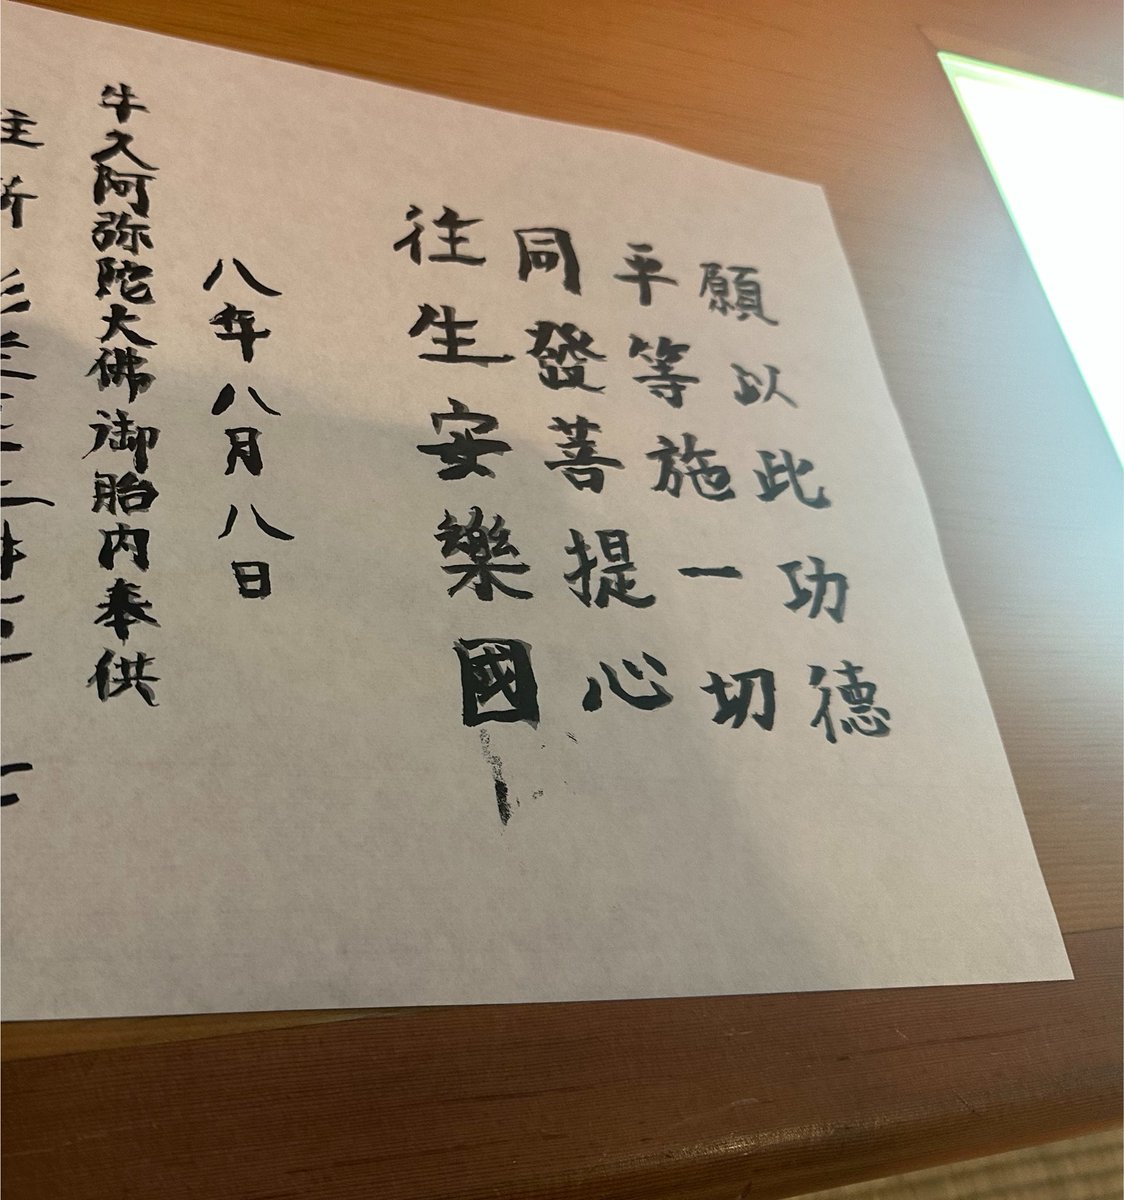 願以此功德
平等施一切
同發菩提心
往生安樂國
八年八月八日
牛久阿弥陀大佛御胎内奉供
住所